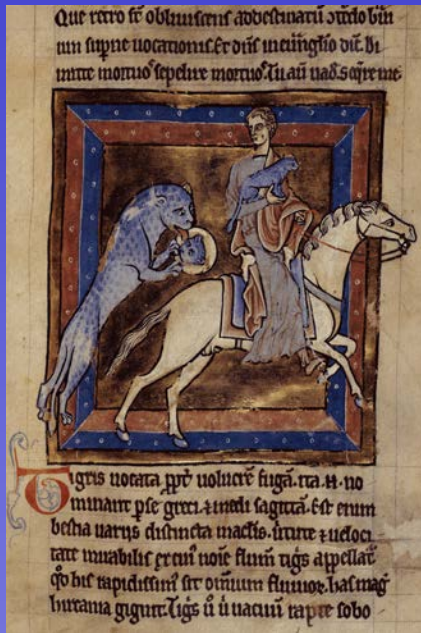 Que retro st̄ obliuiscens ad destinatū ↄtēdo
supne uocationis. Et dn̄s in euuāglio dic̄.
mitte mortuoˢ sepelire mortuoˢ. Tu aū uad̄ seq̄re me.
Tigris uocata ꝓpt̄ uolucrē fugā. ita .n. no
minant pse greci ⁊ medi sagittā. Est enim
bestia uarijs distincta maclis. uirtute ⁊ ueloci
tate mirabilis ex cui᷒ noīe flum̄ tigs̄ appellat᷑
qd̄ his rapidissim᷒ sit omnium fluuioꝝ. has mag᷒
hircania gignit. Tigs̄ u̇ ů uacuū rapte sobo